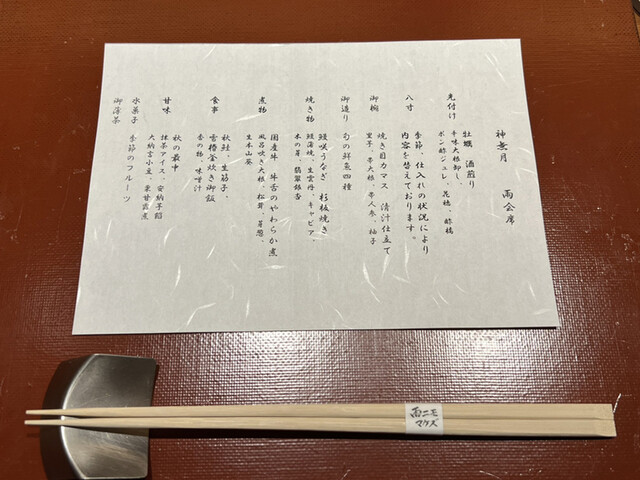 神無月　雨会席
先付け
牡蠣　酒煎り
辛味大根卸し、
ポン酢ジュレ、花穂、酢橘
八寸
季節、仕入れの状況により
内容を替えております。
御椀
焼き目カマス　清汁仕立て
里芋、芽大根、芽人参、柚子
御造り
旬の鮮魚四種
焼き物
鰻咲うなぎ　杉板焼き
鰻蒲焼、生雲丹、キャビア、
木の芽、翡翠銀杏
煮物
国産牛　牛舌のやわらか煮
風呂吹き大根、松茸、芽葱、
生本山葵
食事
秋鮭、生筋子、
雲櫓釜炊き御飯
香の物、味噌汁
甘味
秋の最中
抹茶アイス、安納芋餡
大納言小豆、栗甘露煮
水菓子
季節のフルーツ
御薄茶
雨ニモ
マケズ